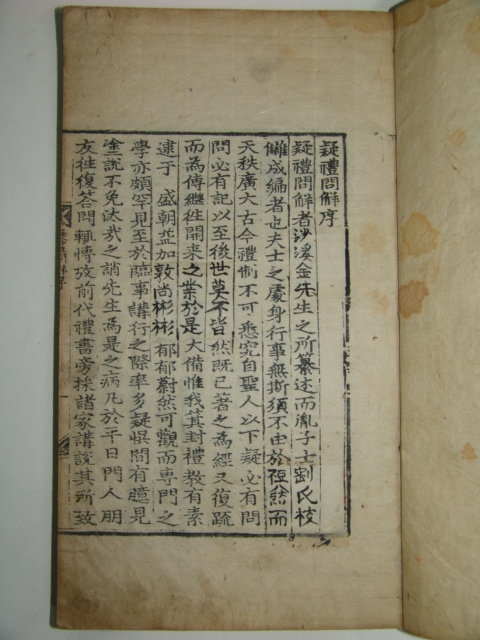 疑禮問解序
疑禮問解者沙溪金先生之所纂述而胤子士剛氏校
讎成編者也夫士之處身行事無斯須不由於禮然而
天秩廣大古今禮制不可悉究自聖人以下疑必有問
問必有記以至後世莫不皆然既已著之為經又復疏
而為傳繼往開來之業於是大備惟我箕封禮教有素
逮于 盛朝益加敦尚彬彬郁郁蔚然可觀而專門之
學亦頗罕見至於臨事講行之際率多疑悞間有臆見
塗說不免汰哉之誚先生為是之病凡於平日門人朋
友往復答問輒慱攷前代禮書旁採諸家講說其所致